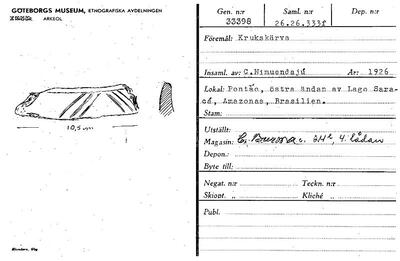 GÖTEBORGS MUSEUM, ETNOGRAFISKA AVDELNINGEN
ARKEOL.
10,5 cm
Gen. n:r
33398
Saml. n:r
26.26.333f
Dep. n:r
Föremål: Krukskärva
Insaml. av: C.Nimuendajú År: 1926
Lokal: Pontão, östra ändan av Lago Sara-
cá, Amazonas, Brasilien.
Stam:
Utställt:
Magasin: 4. lådan
Depon.:
Byte till:
Negat. n:r Teckn. n:r
Skiopt. „ Kliché „
Publ.